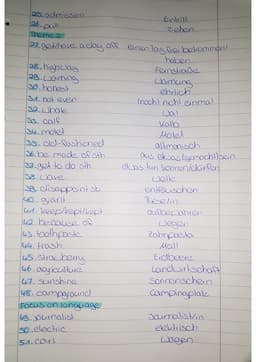 25. admission Eintritt
26. pull Ziehen
Theme 2
27. get/have a day off einen Tag frei bekommen/
haben
28. highway Fernstraße
29. warning Warnung
30. honest ehrlich
31. not even (noch) nicht einmal
32. whale Wal
33. calf Kalb
34. motel Motel
35. old-fashioned altmodisch
36. be made of sth aus etwas (gemacht) sein
37. get to do sth etwas tun können/dürfen
38. wave Welle
39. disappoint sb enttäuschen
40. giant Riese/in
41. keep/kept/kept aufbewahren
42. because of wegen
43. toothpaste Zahnpasta
44. trash Müll
45. strawberry Erdbeere
46. agriculture Landwirtschaft
47. sunshine Sonnenschein
48. campground Campingplatz
Focus on language
49. journalist Journalist/in
50. electric elektrisch
51. cart Wagen